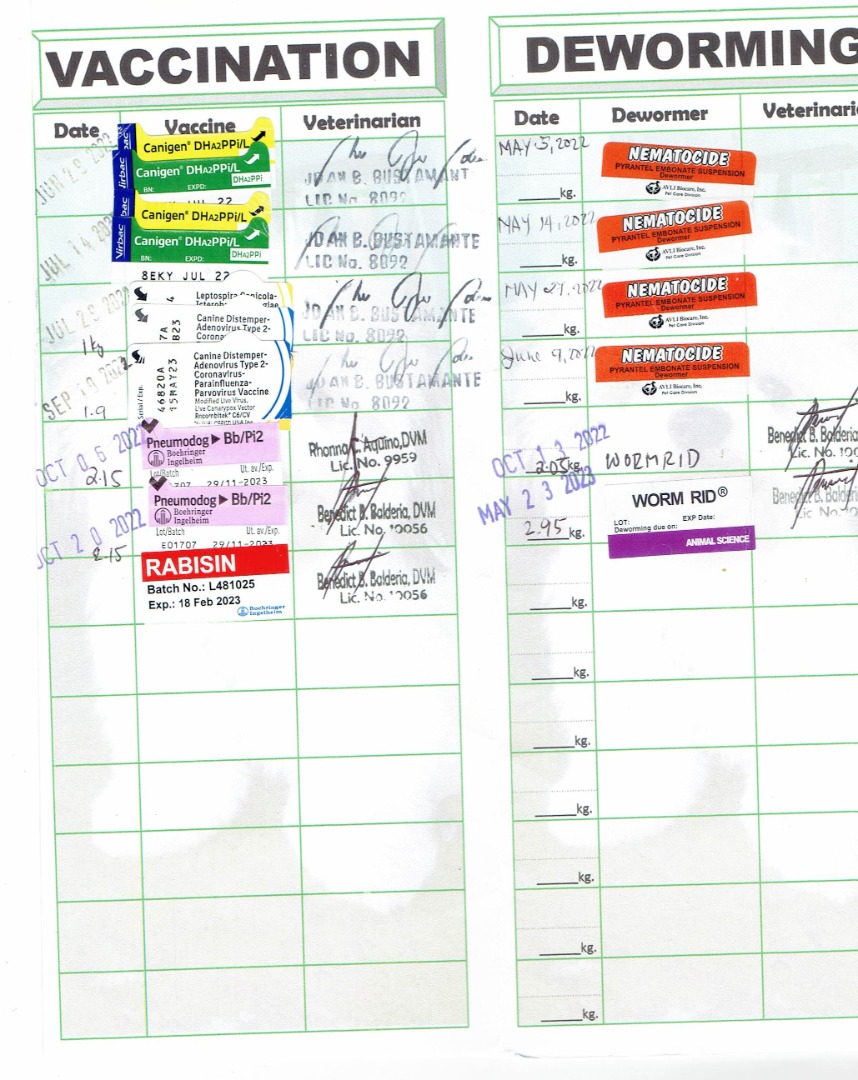 VACCINATION
Date Vaccine Veterinarian
JUN 29 2022
Virbac
Canigen® DHA2PPi/L
Canigen® DHA2PPi/L
DHA2PPi
BN: EXPD:
JUL 22
JOAN B. BUSTAMANT
LIC No. 8092
JUL 14 2022
Virbac
Canigen® DHA2PPi/L
Canigen® DHA2PPi/L
DHA2PPi
BN: EXPD:
8EKY JUL 22
JOAN B. BUSTAMANTE
LIC No. 8092
JUL 29 2022
1 kg
4
Leptospira Canicola-
7A
B23
Canine Distemper-
Adenovirus Type 2-
Corona
JOAN B. BUSTAMANTE
LIC No. 8092
SEP 19 2022
1.9
46820A
15MAY23
Serial/Exp.
Canine Distemper-
Adenovirus Type 2-
Coronavirus-
Parainfluenza-
Parvovirus Vaccine
Modified Live Virus,
Live Canarypox Vector
Recombitek® C6/CV
JOAN B. BUSTAMANTE
LIC No. 8092
OCT 06 2022
2.15
Pneumodog ▶ Bb/Pi2
Boehringer
Ingelheim
Lot/Batch Ut. av./Exp.
707 29/11-2023
Rhonna C. Aquino, DVM
Lic. No. 9959
OCT 20 2022
2.15
Pneumodog ▶ Bb/Pi2
Boehringer
Ingelheim
Lot/Batch Ut. av./Exp.
E01707 29/11-2023
Benedict B. Balderia, DVM
Lic. No. 10056
RABISIN
Batch No.: L481025
Exp.: 18 Feb 2023
Boehringer
Ingelheim
Benedict B. Balderia, DVM
Lic. No. 10056
DEWORMING
Date Dewormer Veterinari
MAY 5, 2022
kg.
NEMATOCIDE
PYRANTEL EMBONATE SUSPENSION
Dewormer
AVLI Biocare, Inc.
Pet Care Division
MAY 14, 2022
kg.
NEMATOCIDE
PYRANTEL EMBONATE SUSPENSION
Dewormer
AVLI Biocare, Inc.
Pet Care Division
MAY 27, 2022
kg.
NEMATOCIDE
PYRANTEL EMBONATE SUSPENSION
Dewormer
AVLI Biocare, Inc.
Pet Care Division
June 9, 2022
kg.
NEMATOCIDE
PYRANTEL EMBONATE SUSPENSION
Dewormer
AVLI Biocare, Inc.
Pet Care Division
OCT 13 2022
2.05 kg.
WORMRID
Benedict B. Balderia
Lic. No. 100
MAY 23 2023
2.95 kg.
WORM RID®
LOT: EXP Date:
Deworming due on:
ANIMAL SCIENCE
Benedict B. Balderi
Lic. No. 10
kg.
kg.
kg.
kg.
kg.
kg.
kg.